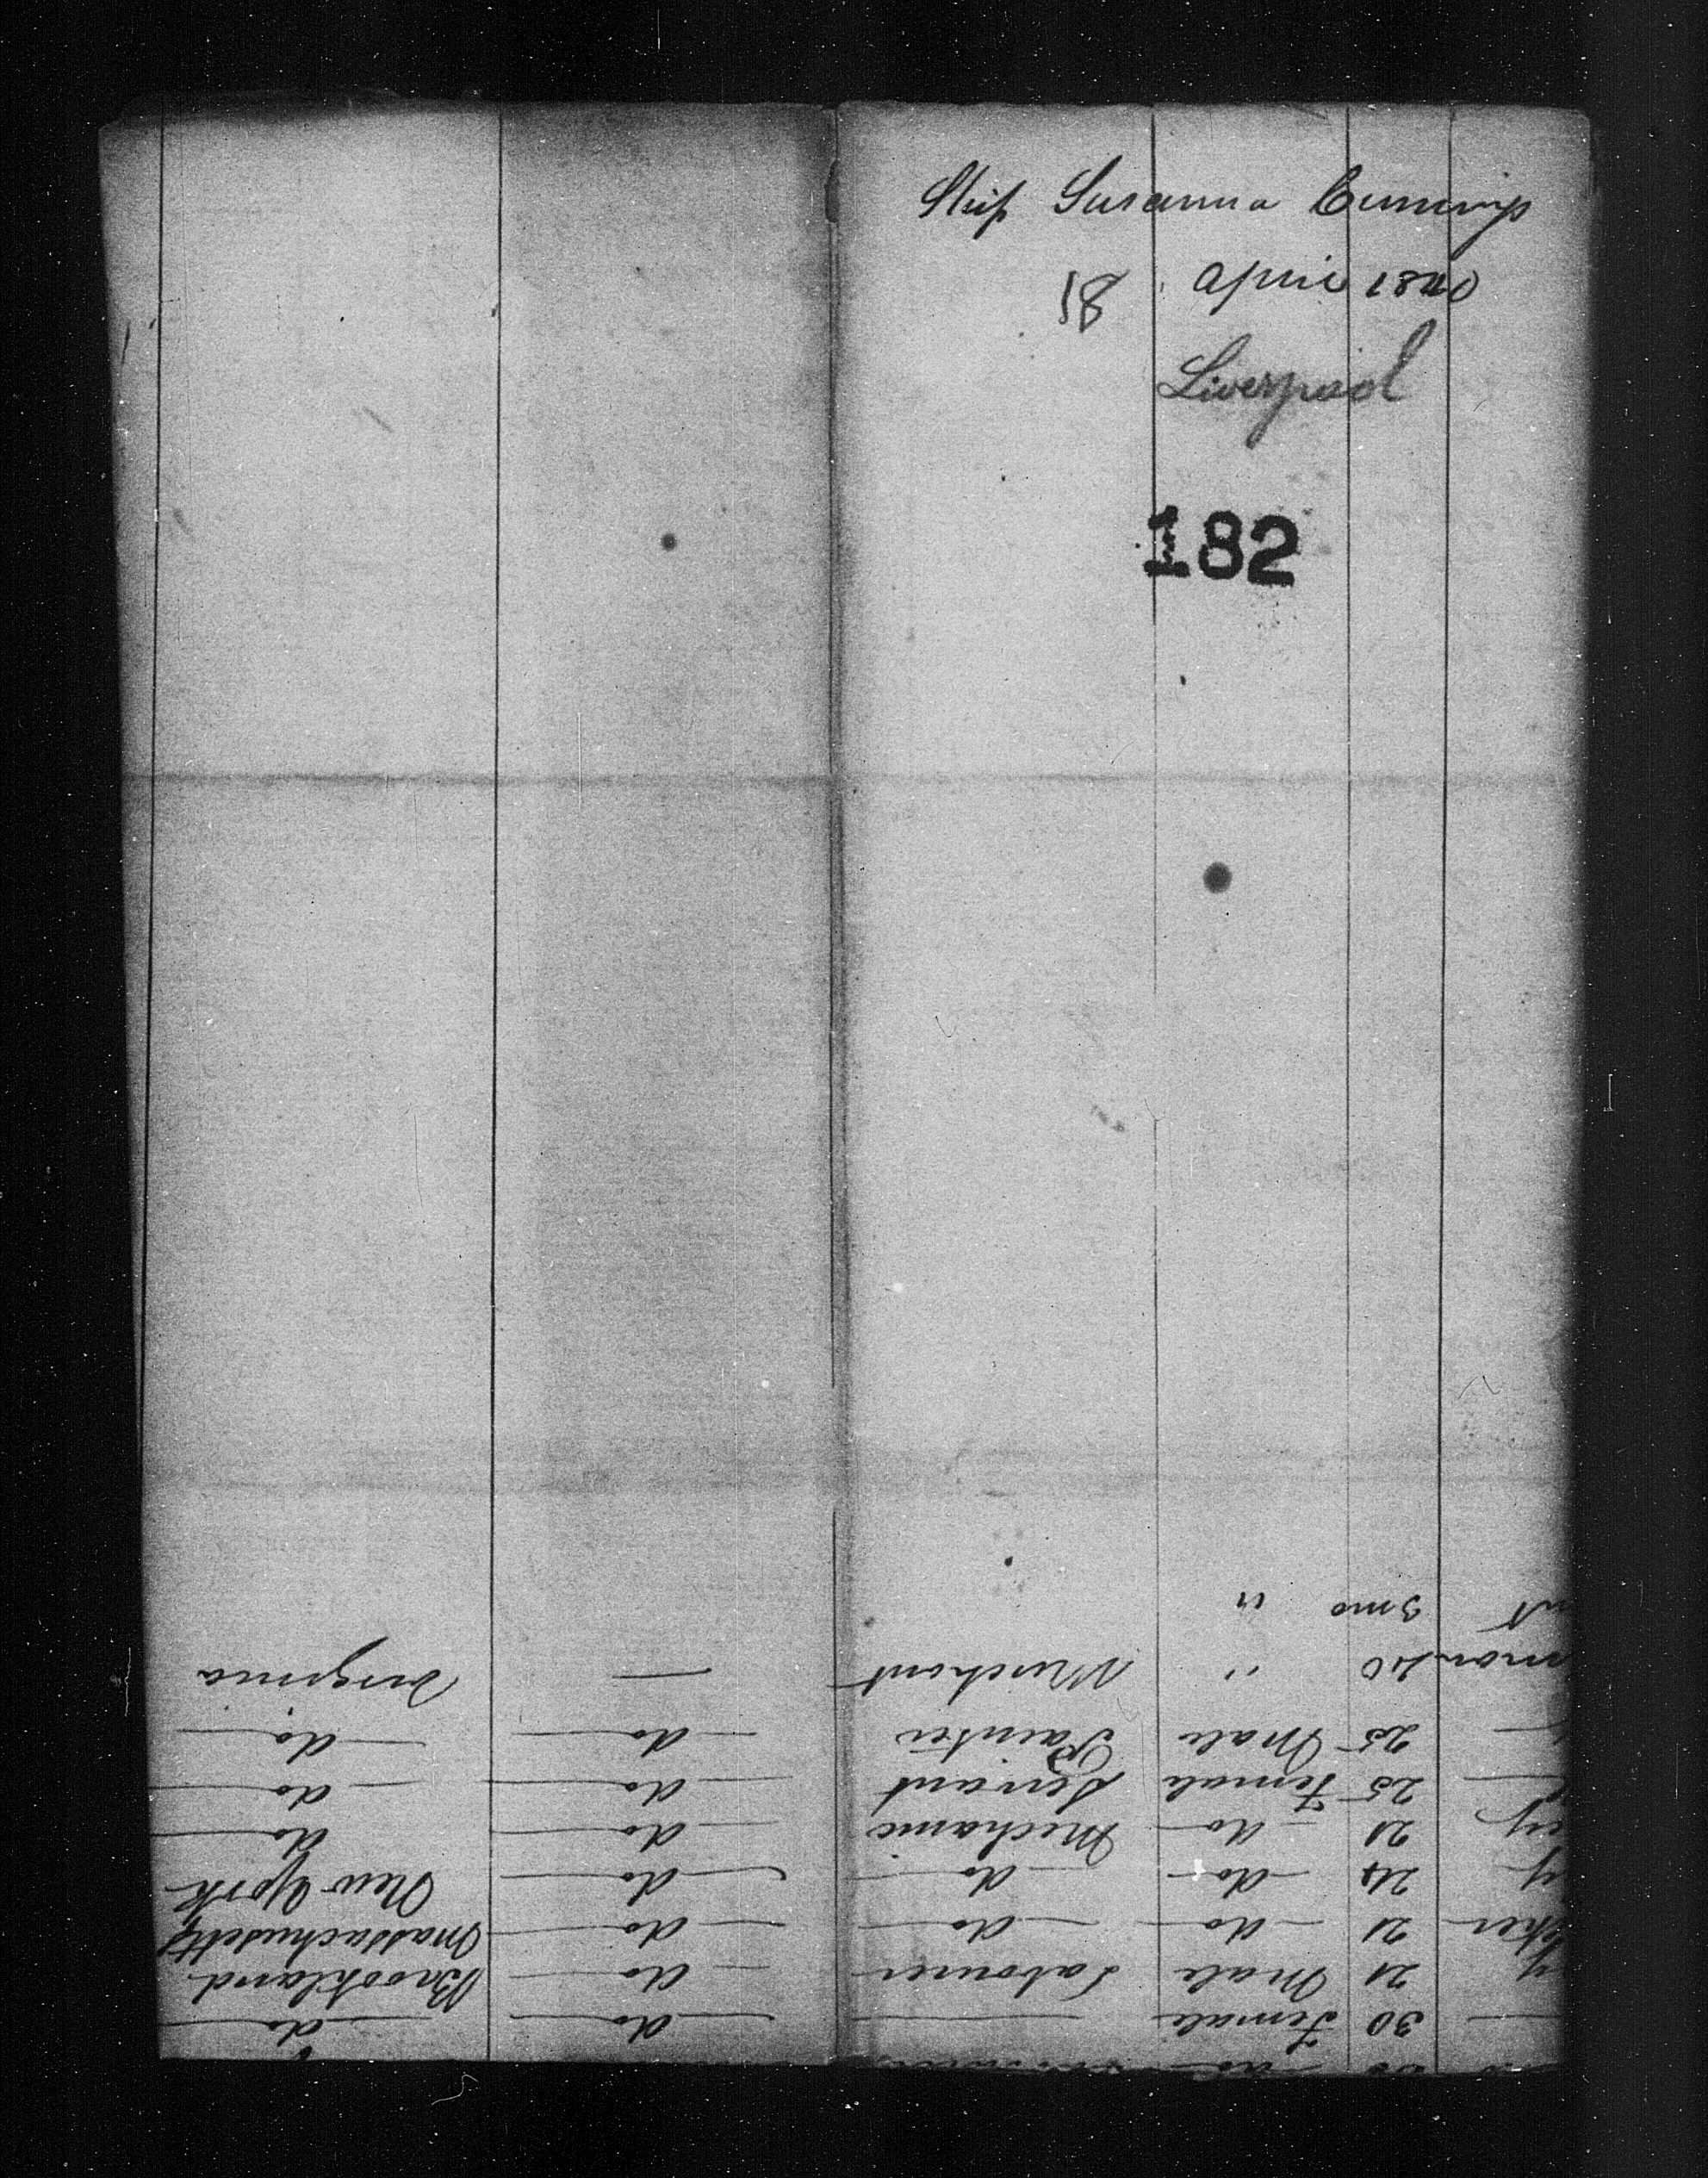 Ship Susanna Cummings
18 April 1870
Liverpool
182
30 Female — do — do
21 Male Labourer do Brookland
21 do do do Massachusetts
24 do do do New York
21 do Mechanic do do
25 Female Servant do do
25 Male Painter do do
40 " Merchant — Virginia
3 mo "